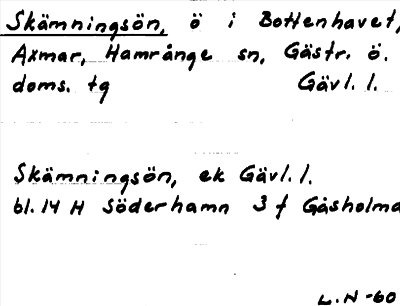 Skämningsön, ö i Bottenhavet,
Axmar, Hamrånge sn, Gästr. ö.
doms. tg Gävl. l.
Skämningsön, ek Gävl. l.
bl. 14 H Söderhamn 3 f Gåsholma
L.N -60